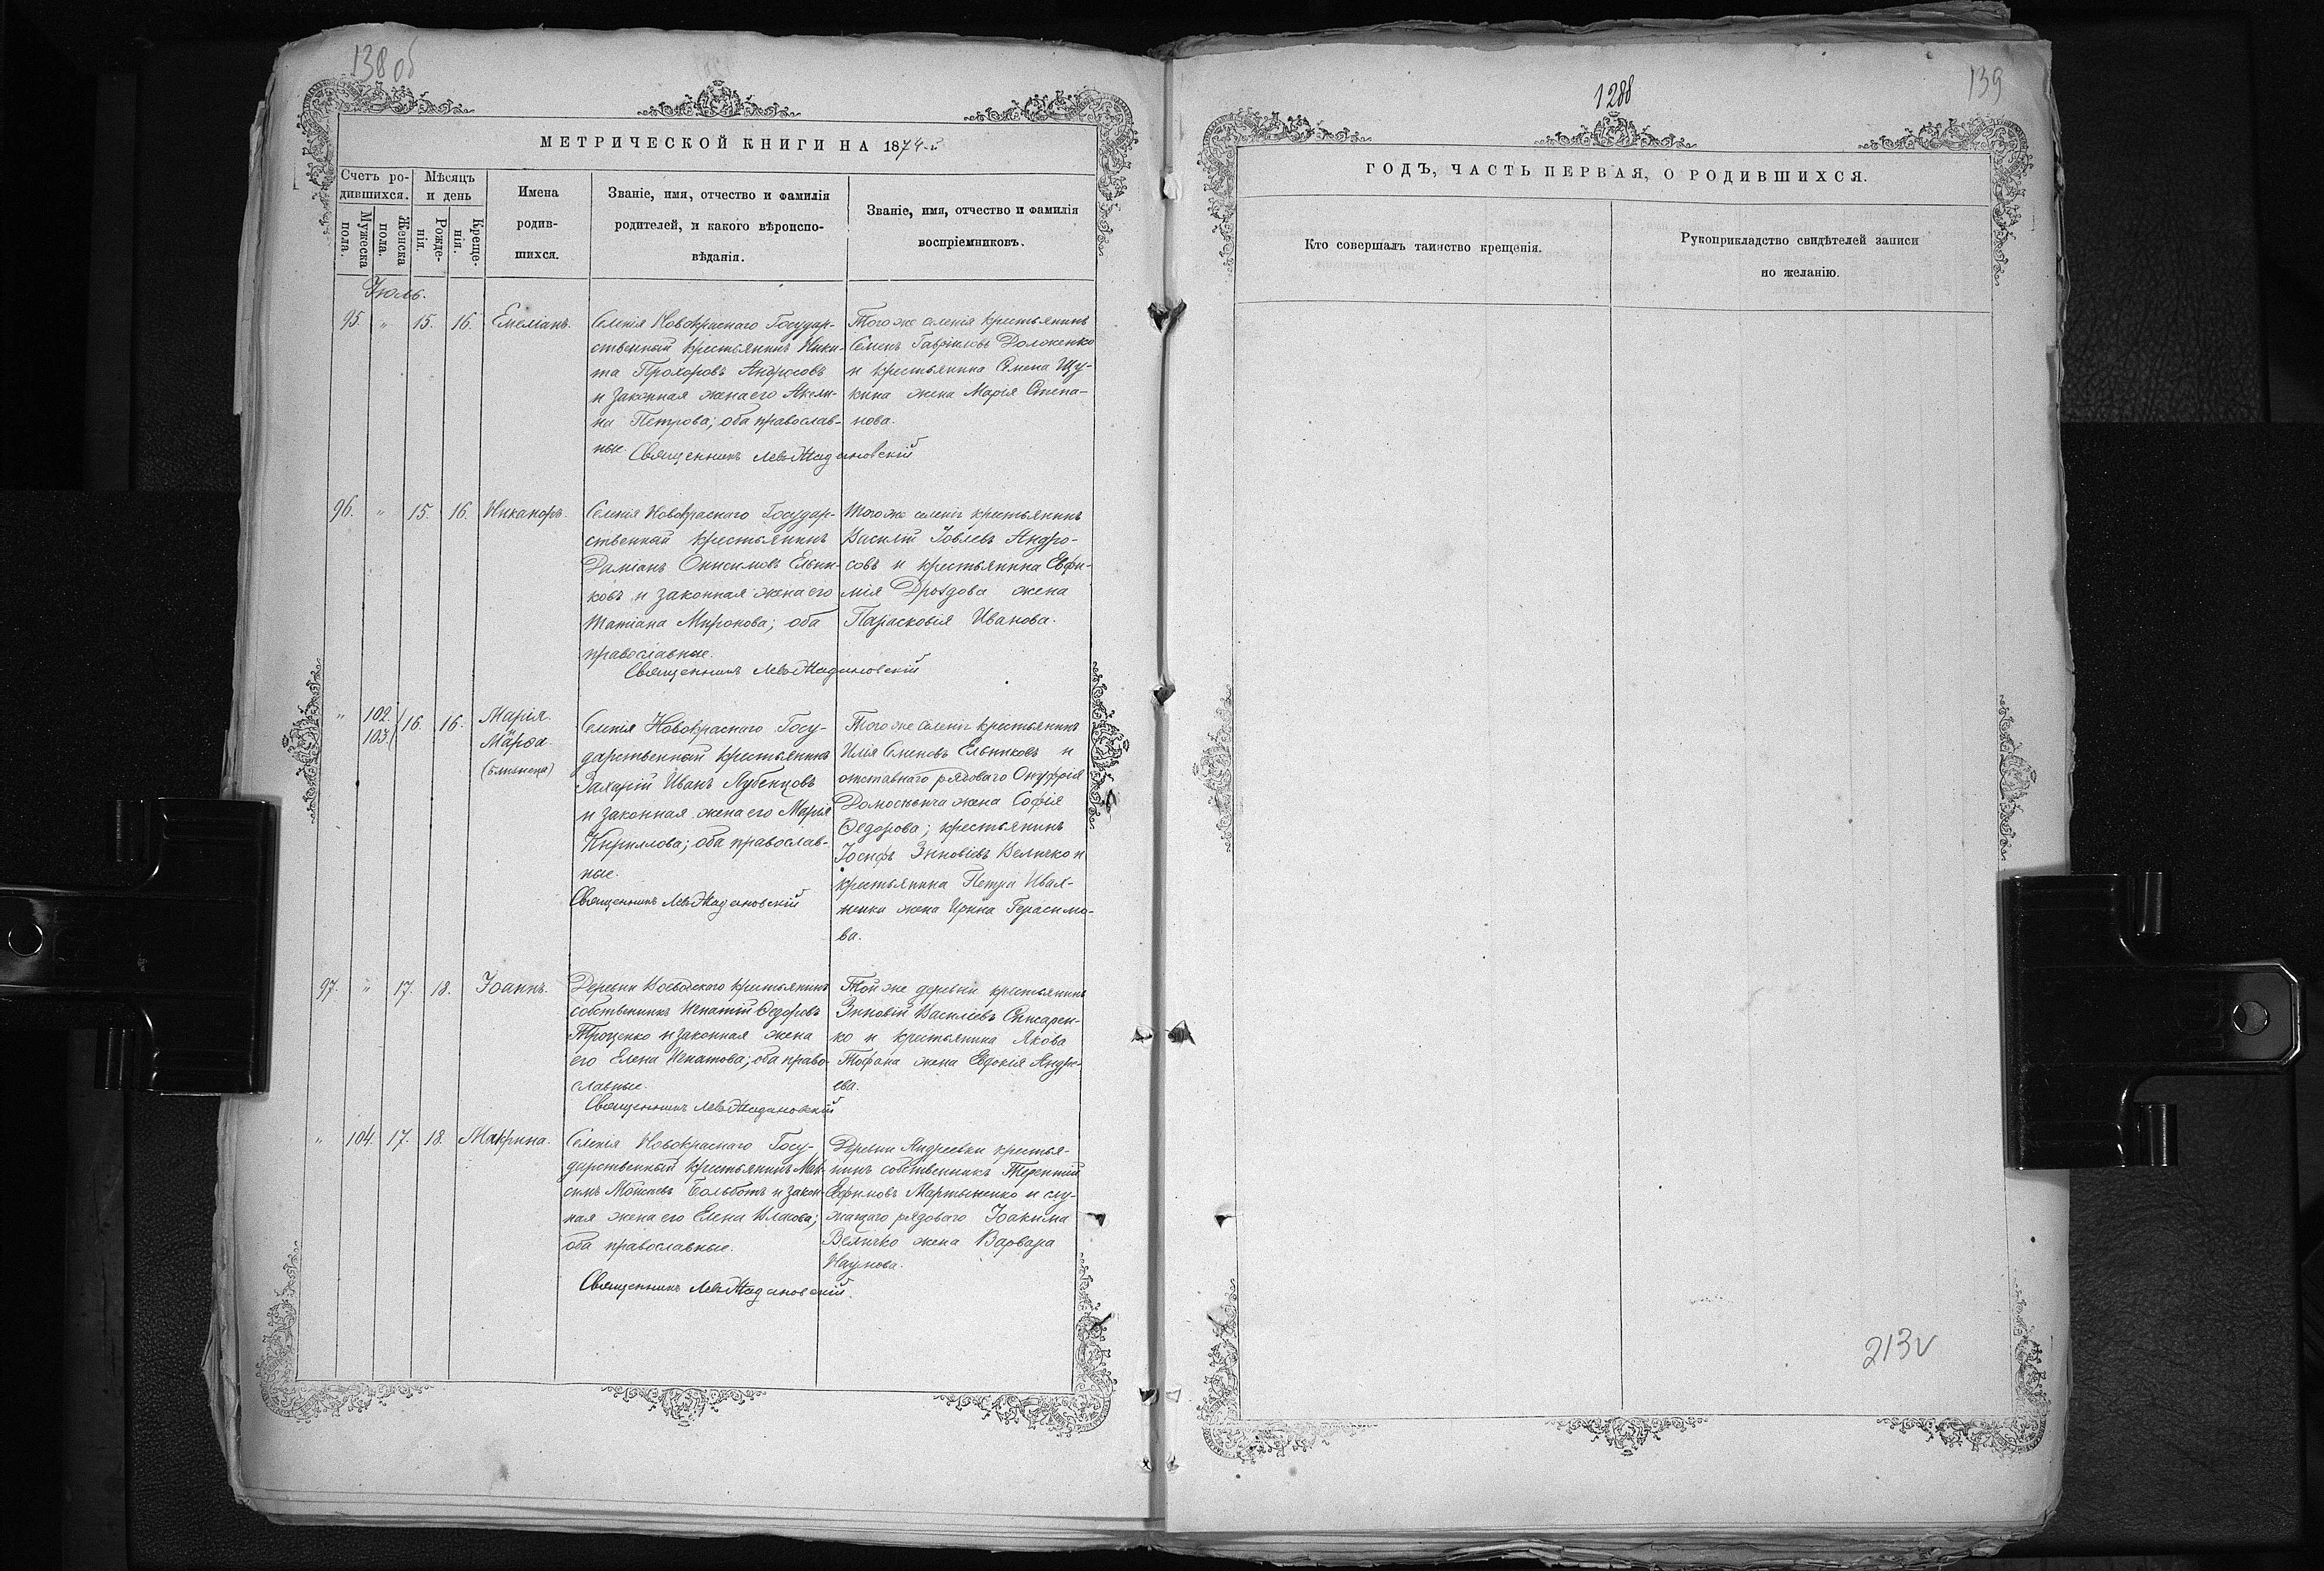 138 об
МЕТРИЧЕСКОЙ КНИГИ НА 1874-й
Счетъ ро-
дившихся.
Мужеска
пола.
Женска
пола.
Мѣсяцъ
и день
Рожде-
нія.
Креще-
нія.
Имена
родив-
шихся.
Званіе, имя, отчество и фамилія
родителей, и какого вѣроиспо-
вѣданія.
Званіе, имя, отчество и фамилія
воспріемниковъ.
Іюль.
95. " 15. 16. Емеліанъ.
Селенія Новокраснаго Государ-
ственный крестьянинъ Ники-
та Прохоровъ Андросовъ
и законная жена его Акили-
на Петрова; оба православ-
ные.
Того же селенія крестьянинъ
Семенъ Гавріиловъ Доложенко
и крестьянина Семена Щу-
кина жена Марія Степа-
нова.
Священникъ Левъ Жадановскій
96. " 15. 16. Никаноръ.
Селенія Новокраснаго Государ-
ственный крестьянинъ
Даміанъ Онисимовъ Ельни-
ковъ и законная жена его
Татіана Миронова; оба
православные.
Того же селенія крестьянинъ
Василій Іовлевъ Андро-
совъ и крестьянина Евфи-
мія Дроздова жена
Парасковія Иванова.
Священникъ Левъ Жадановскій
" 102. 103. 16. 16. Марія.
Марѳа.
(близнецы)
Селенія Новокраснаго Госу-
дарственный крестьянинъ
Захарій Иванъ Лубенцовъ
и законная жена его Марія
Кириллова; оба православ-
ные.
Священникъ Левъ Жадановскій
Того же селенія крестьянинъ
Илія Семеновъ Ельниковъ и
отставнаго рядоваго Онуфрія
жена Софія
Ѳедорова; крестьянинъ
Іосифъ Зиновіевъ Величко и
крестьянина Петра Ивах-
ненка жена Ирина Герасимо-
ва.
97. " 17. 18. Іоаннъ.
Деревни Воеводскаго крестьянинъ
собственникъ Игнатій Ѳедоровъ
Троценко и законная жена
его Елена Игнатова; оба право-
славные.
Той же деревни крестьянинъ
Зиновій Василіевъ Слюсарен-
ко и крестьянина Якова
жена Евдокія Андре-
ева.
Священникъ Левъ Жадановскій
" 104. 17. 18. Макрина.
Селенія Новокраснаго Госу-
дарственный крестьянинъ Мак-
симъ Моисеевъ Больботъ и закон-
ная жена его Елена Власова;
оба православные.
Деревни Андреевки крестья-
нинъ собственникъ Терентій
Ефимовъ Мартыненко и слу-
жащаго рядоваго Іоакима
Величко жена Варвара
Наумова.
Священникъ Левъ Жадановскій.
1288
139
ГОДЪ, ЧАСТЬ ПЕРВАЯ, О РОДИВШИХСЯ.
Кто совершалъ таинство крещенія.
Рукоприкладство свидѣтелей записи
по желанію.
213v